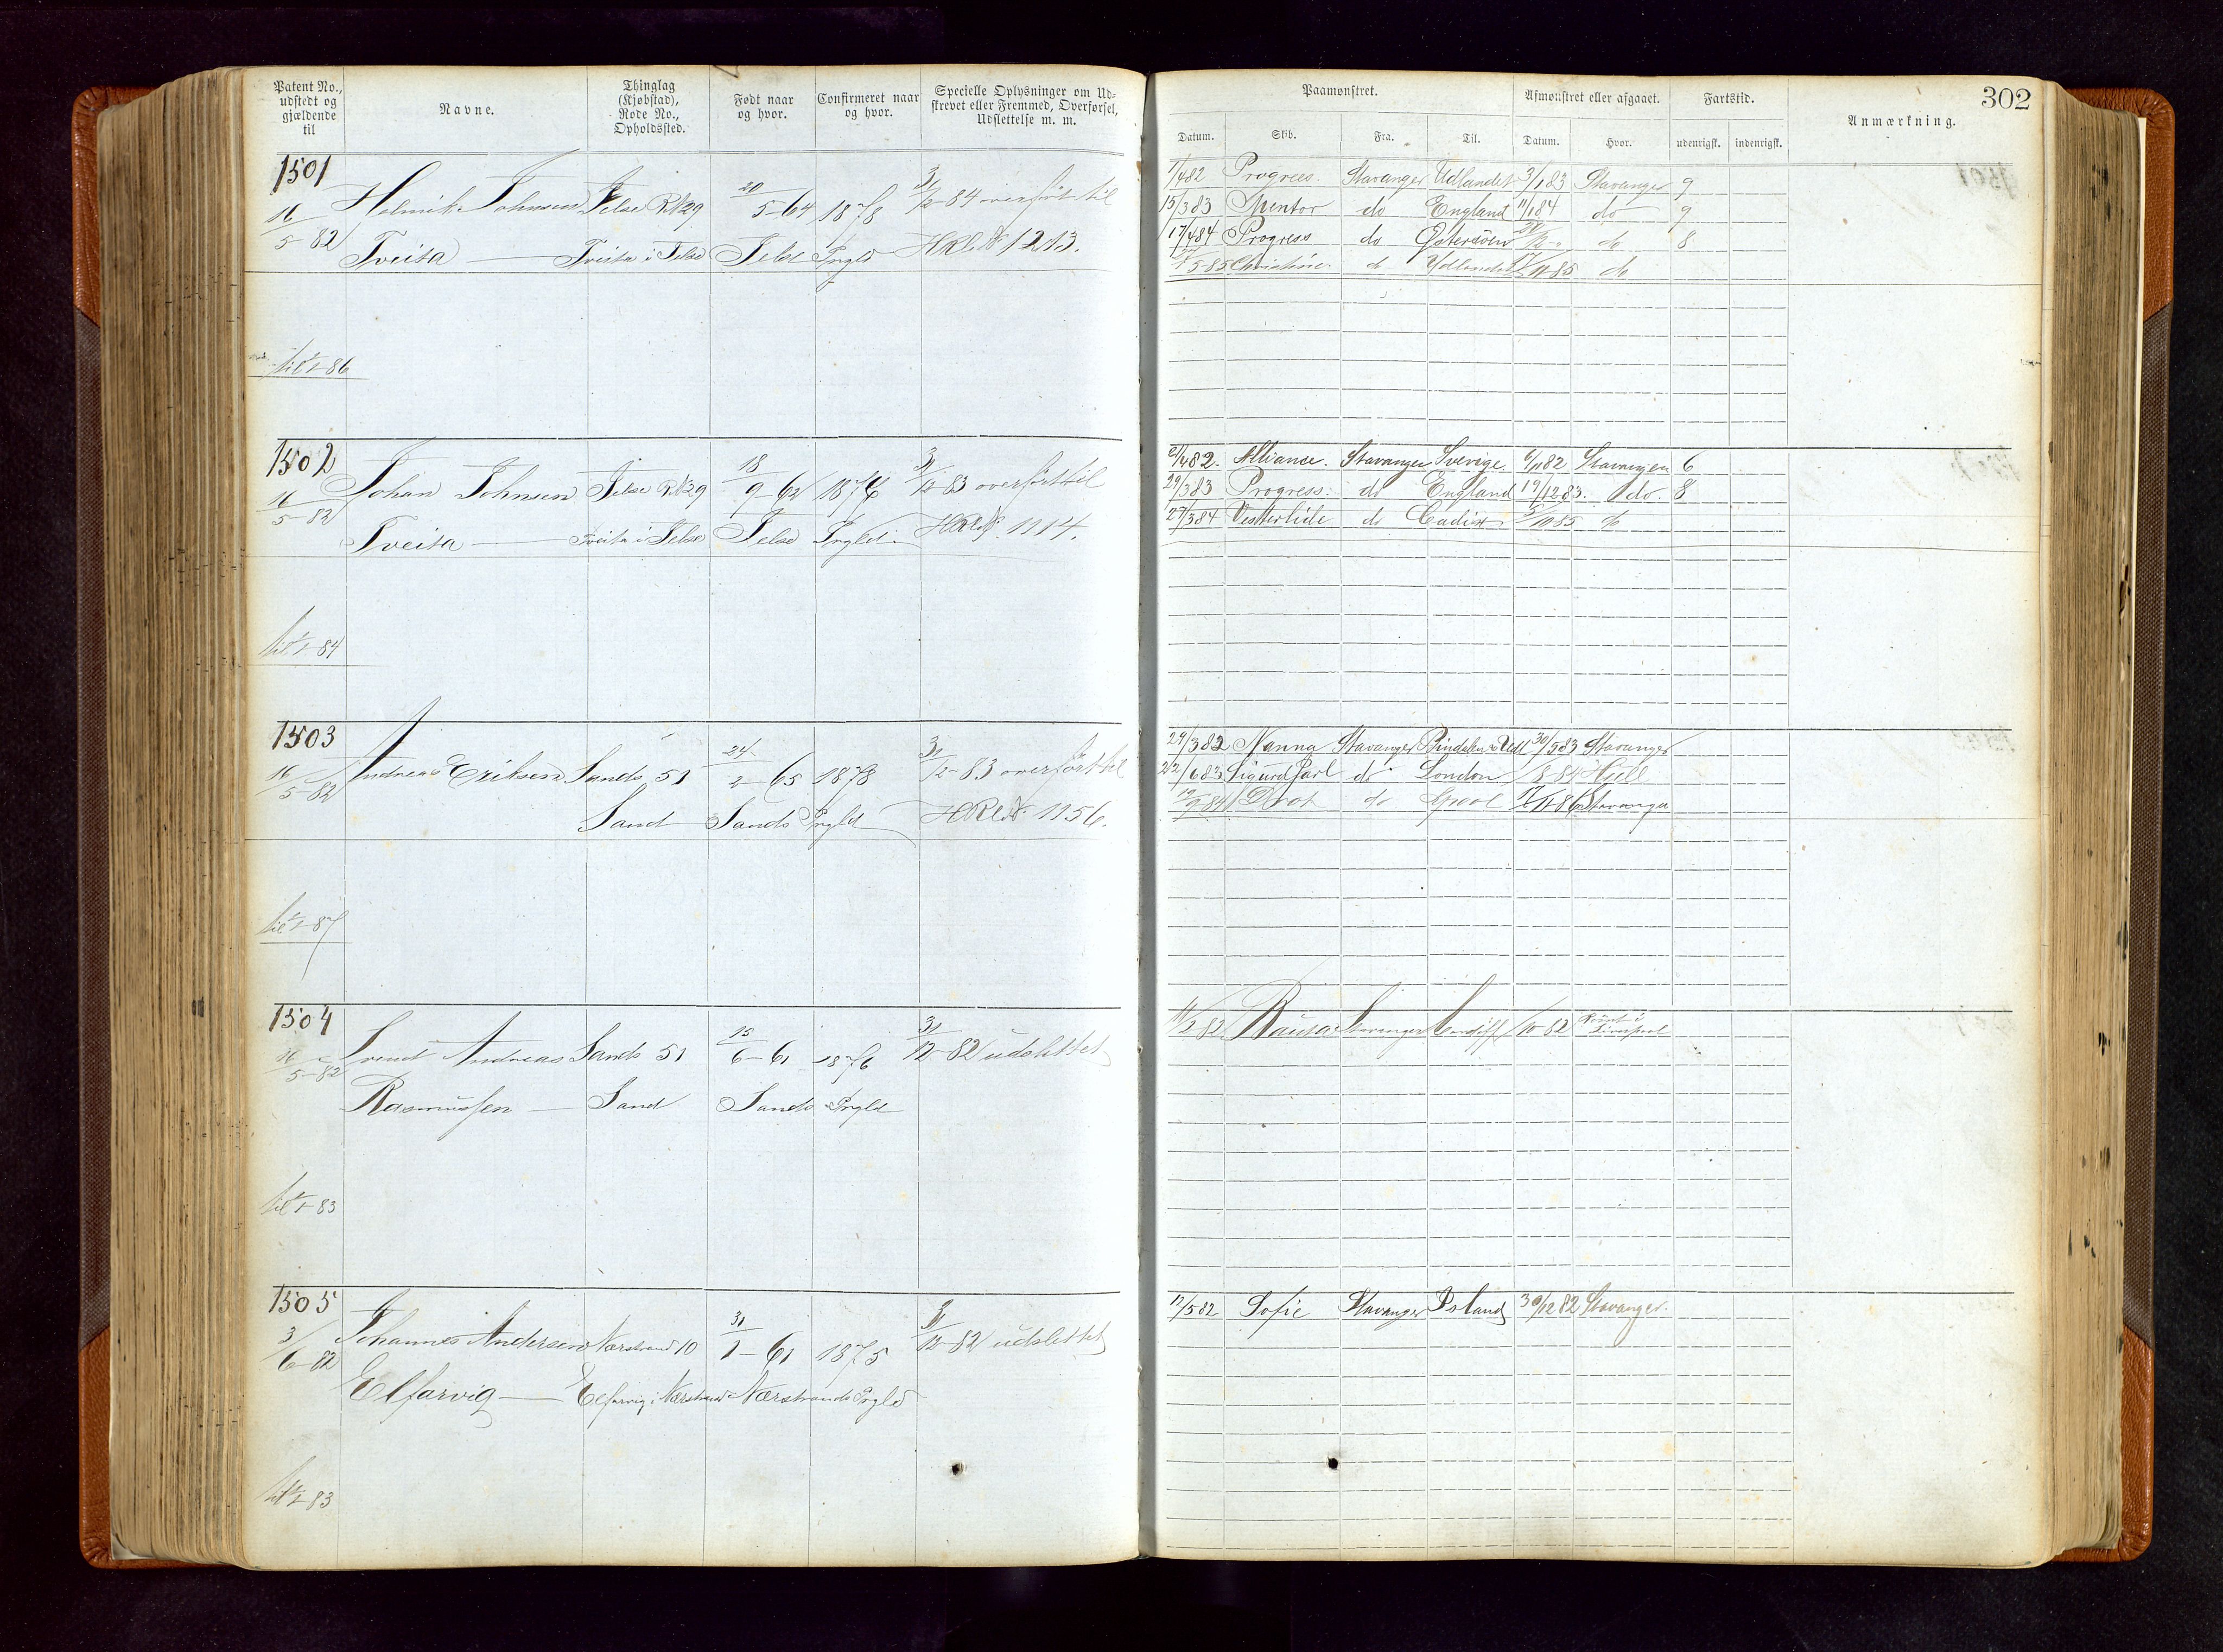 302
Patent No., udstedt og gjældende til
Navne.
Thinglag (Kjøbstad), Rode No., Opholdssted.
Født naar og hvor.
Confirmeret naar og hvor.
Specielle Oplysninger om Udskrevet eller Fremmed, Overførsel, Udslettelse m. m.
Paamønstret.
Afmønstret eller afgaaet.
Fartstid.
Anmærkning.
Datum. Skib. Fra. Til. Datum. Hvor. udenrigsk. indenrigsk.
1501
16/5-82 Johnsen Jelse R.N.29 20/5-64 1878 31/12-84 overført til
Tveita Tveita i Jelse Jelse HRl.N. 1213.
til 1/1-86
1/4 82 Progress. Stavanger Udlandet 3/1 83 Stavanger 9
15/3 83 Mentor do England 11/1 84 do 9
17/4 84 Progress do Østersöen do 8
5-85 Christine do Udlandet 85 do
1502
16/5-82 Johan Johnsen Jelse R.N.29 18/9-62 31/12-83 overført til
Tveita Tveita i Jelse Jelse HRl.N. 1114.
til 1/1-84
21/4 82. Alliance. Stavanger Sverige 82 Stavanger 6
29/3 83 Progress. do England 19/12 83. do. 8
27/3 84 Vesterlide do Cadix 85 do
1503
16/5-82 Andreas Eriksen Sands 51 24/2-65 1878 31/12-83 overført til
Sand Sands HRl.N. 1156.
til 1/1-87
29/3 82 Nanna Stavanger 30/5 83 Stavanger
22/6 83 Sigurd Jarl do London 84 Hull
84 do Stavanger
1504
16/5-82 Svend Andreas Sands 51 15/6-61 1876 31/12-82 udslettet
Rasmussen Sand Sands
til 1/1-83
82 Stavanger Cardiff /10 82 Rømt i Liverpool
1505
3/6-82 Johannes Andersen Nærstrand 10 31/1-61 1875 31/12-82 udslettet
Elfarvig Elfarvig i Nærstrand Nærstrands
til 1/1-83
12/5 82 Sofie Stavanger Island 30/12 82 Stavanger.